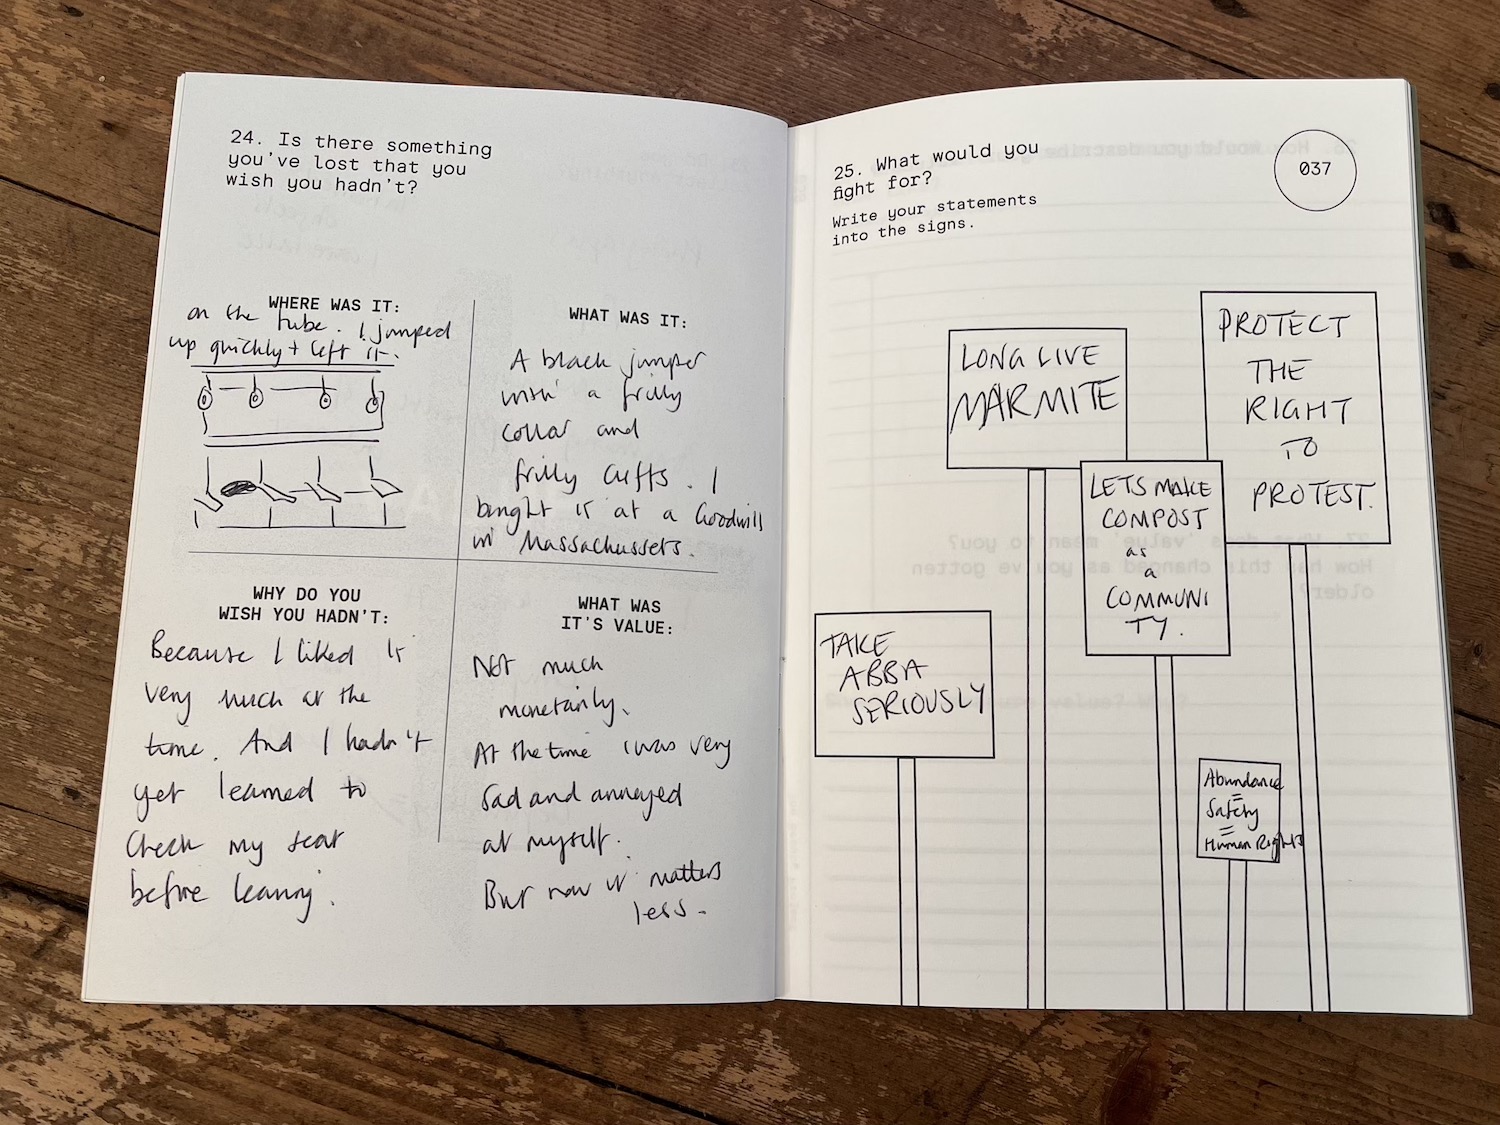 24. Is there something
you've lost that you
wish you hadn't?
WHERE WAS IT:
on the tube. I jumped
up quickly + left it.
WHAT WAS IT:
A black jumper
with a frilly
collar and
frilly cuffs. I
bought it at a Goodwill
in Massachussets.
WHY DO YOU
WISH YOU HADN'T:
Because I liked it
very much at the
time. And I hadn't
yet learned to
check my seat
before leaving.
WHAT WAS
IT'S VALUE:
Not much
monetarily.
At the time I was very
sad and annoyed
at myself.
But now it matters
less.
25. What would you
fight for?
Write your statements
into the signs.
037
LONG LIVE
MARMITE
PROTECT
THE
RIGHT
TO
PROTEST.
LETS MAKE
COMPOST
as
a
COMMUNI
TY.
TAKE
ABBA
SERIOUSLY
Abundance
=
Safety
=
Human Rights
27. What does 'value' mean to you?
How has this changed as you've gotten
older?